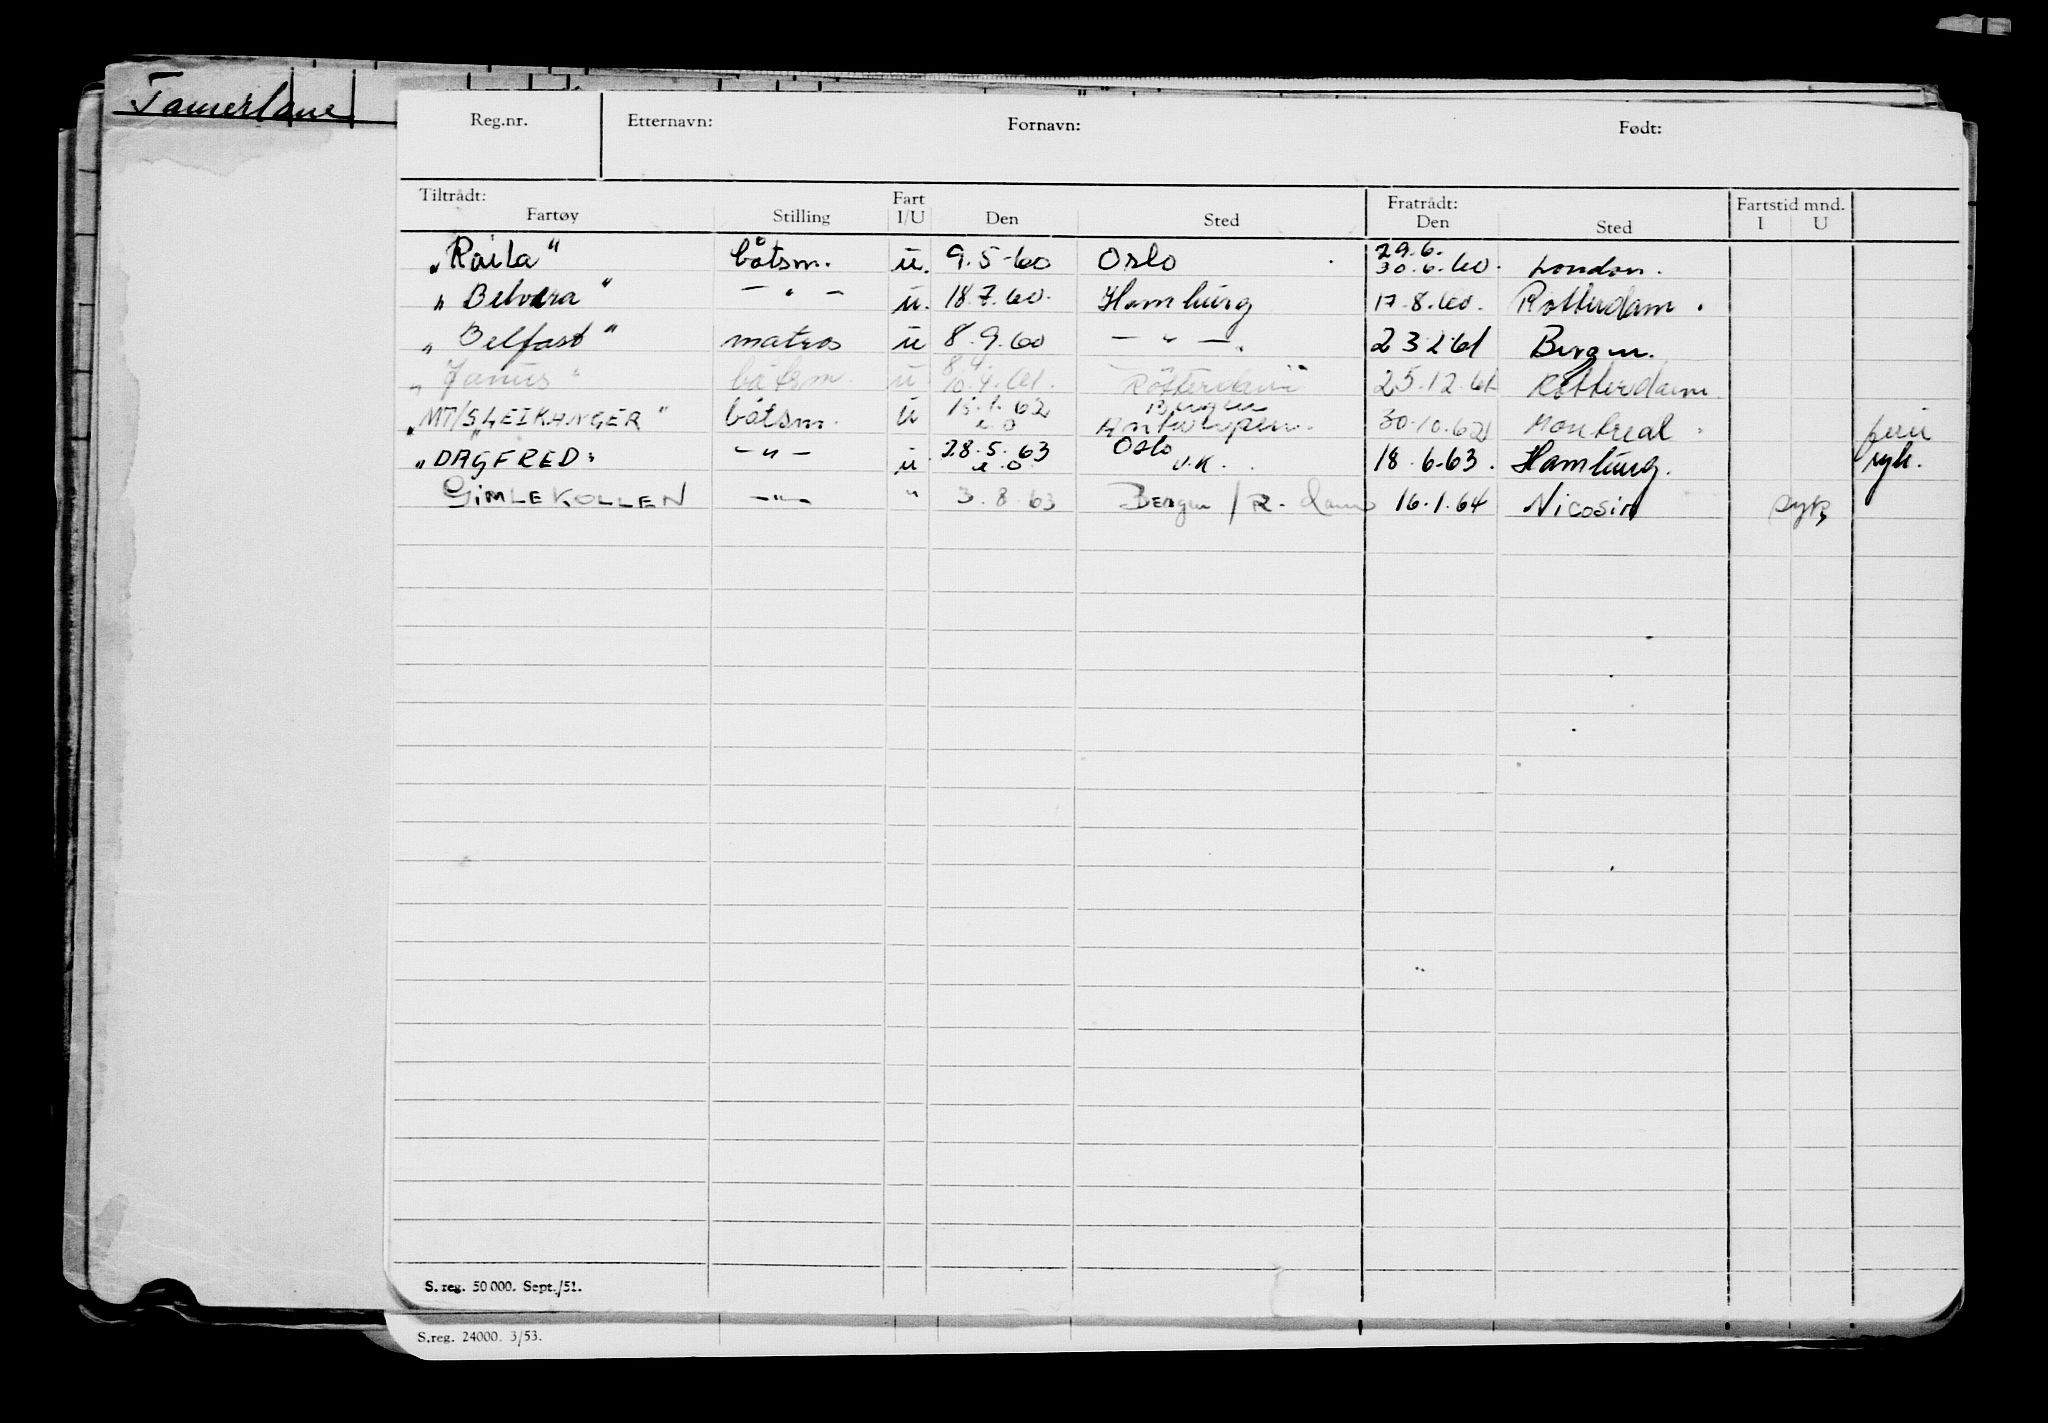 Tamerlane
Reg.nr. Etternavn: Fornavn: Født:
Tiltrådt: Fart Fratrådt: Fartstid mnd.
Fartøy Stilling I/U Den Sted Den Sted I U
29.6.
„Raila" båtsm. u. 9.5-60 Oslo 30.6.60. London.
„Belvera" — " — u. 18.7.60. Hamburg 17.8.60. Rotterdam.
„Belfast" matros u 8.9.60 — " —. 23 2 61 Bergen.
„Janus" båtsm. u 10.4.61. Rotterdam 25.12.61 Rotterdam.
Bergen
„MT/SLEIKANGER" båtsm. u 15.1.62 Antwerpen. 30.10.62 Montreal. ferie
„DAGFRED" — " — u 28.5.63 Oslo 18.6.63. Hamburg. syk.
GIMLEKOLLEN — " — " 3.8.63 Bergen / R.dam 16.1.64 Nicosia syk
S. reg. 50 000. Sept./51.
S.reg. 24000. 3/53.